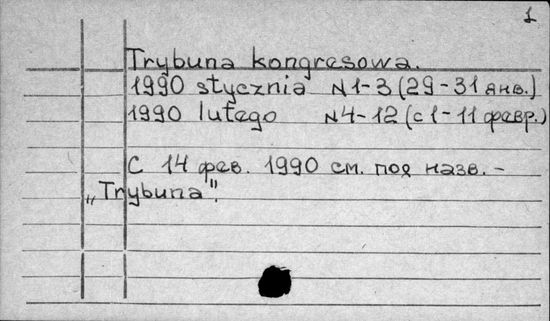 1
Trybuna kongresowa.
1990 stycznia N1-3 (29-31 янв.)
1990 lutego N4-12 (с 1-11 февр.)
С 14 фев. 1990 см. под назв. -
„Trybuna".